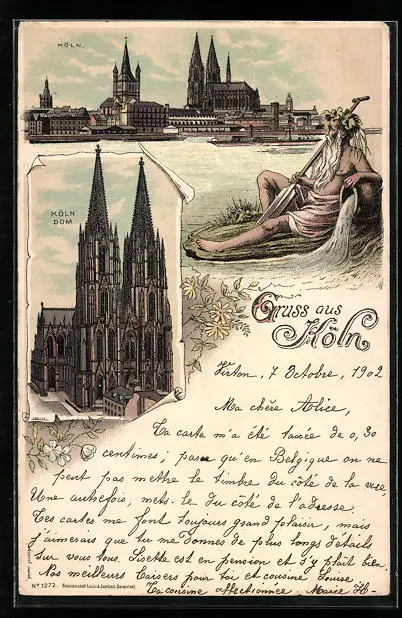 KÖLN.
KÖLN
DOM
Gruss aus
Köln
Virton, 7 Octobre, 1902
Ma chère Alice,
Ta carte m'a été taxée de 0,30
centimes; parce qu'en Belgique on ne
peut pas mettre le timbre du côté de la vue,
Une autrefois, mets-le du côté de l'adresse.
Tes cartes me font toujours grand plaisir, mais
j'aimerais que tu me donnes de plus longs détails
sur vous tous. Lisette est en pension et s'y plaît bien.
Nos meilleurs baisers pour toi et cousine Louise.
Ta cousine affectionnée, Marie H-
No 1272.